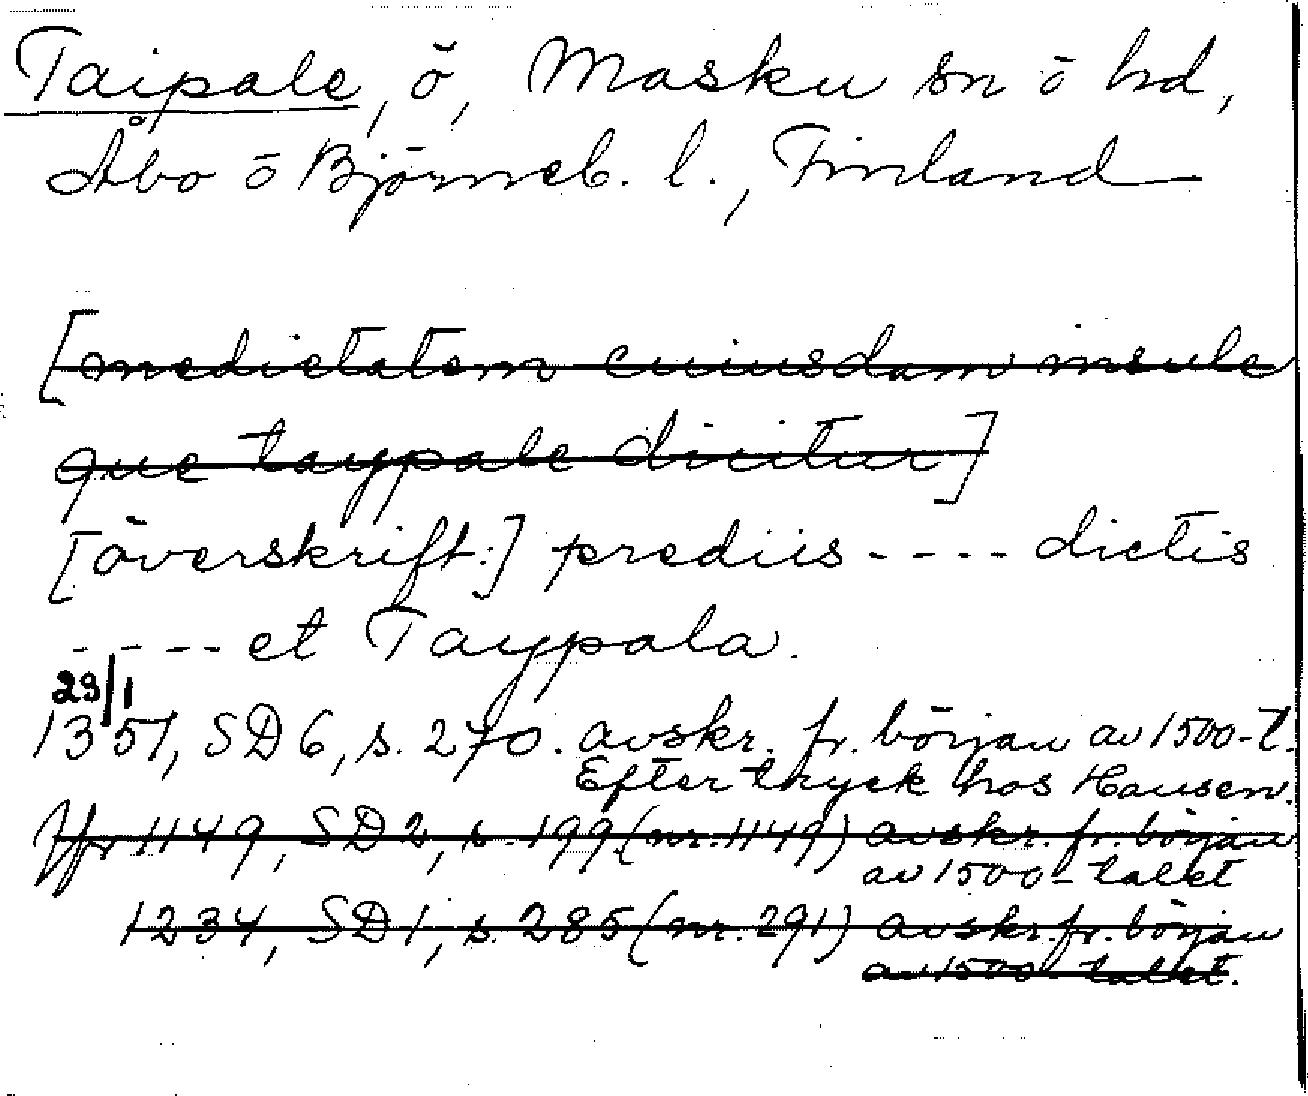 Taipale, ö, Masku sn ō hd,
Åbo ō Björneb. l., Finland
[medietatem cuiusdam insule
que taypale dicitur]
[överskrift:] prediis - - - - dictis
- - - - - et Taypala.
23/1
1351, SD 6, s. 270. avskr. fr. början av 1500-t.
Efter tryck hos Hausen.
Jfr 1149, SD 2, s. 199 (nr. 1149) avskr. fr. början
av 1500-talet
1234, SD 1, s. 285 (nr. 291) avskr. fr. början
av 1500-talet.